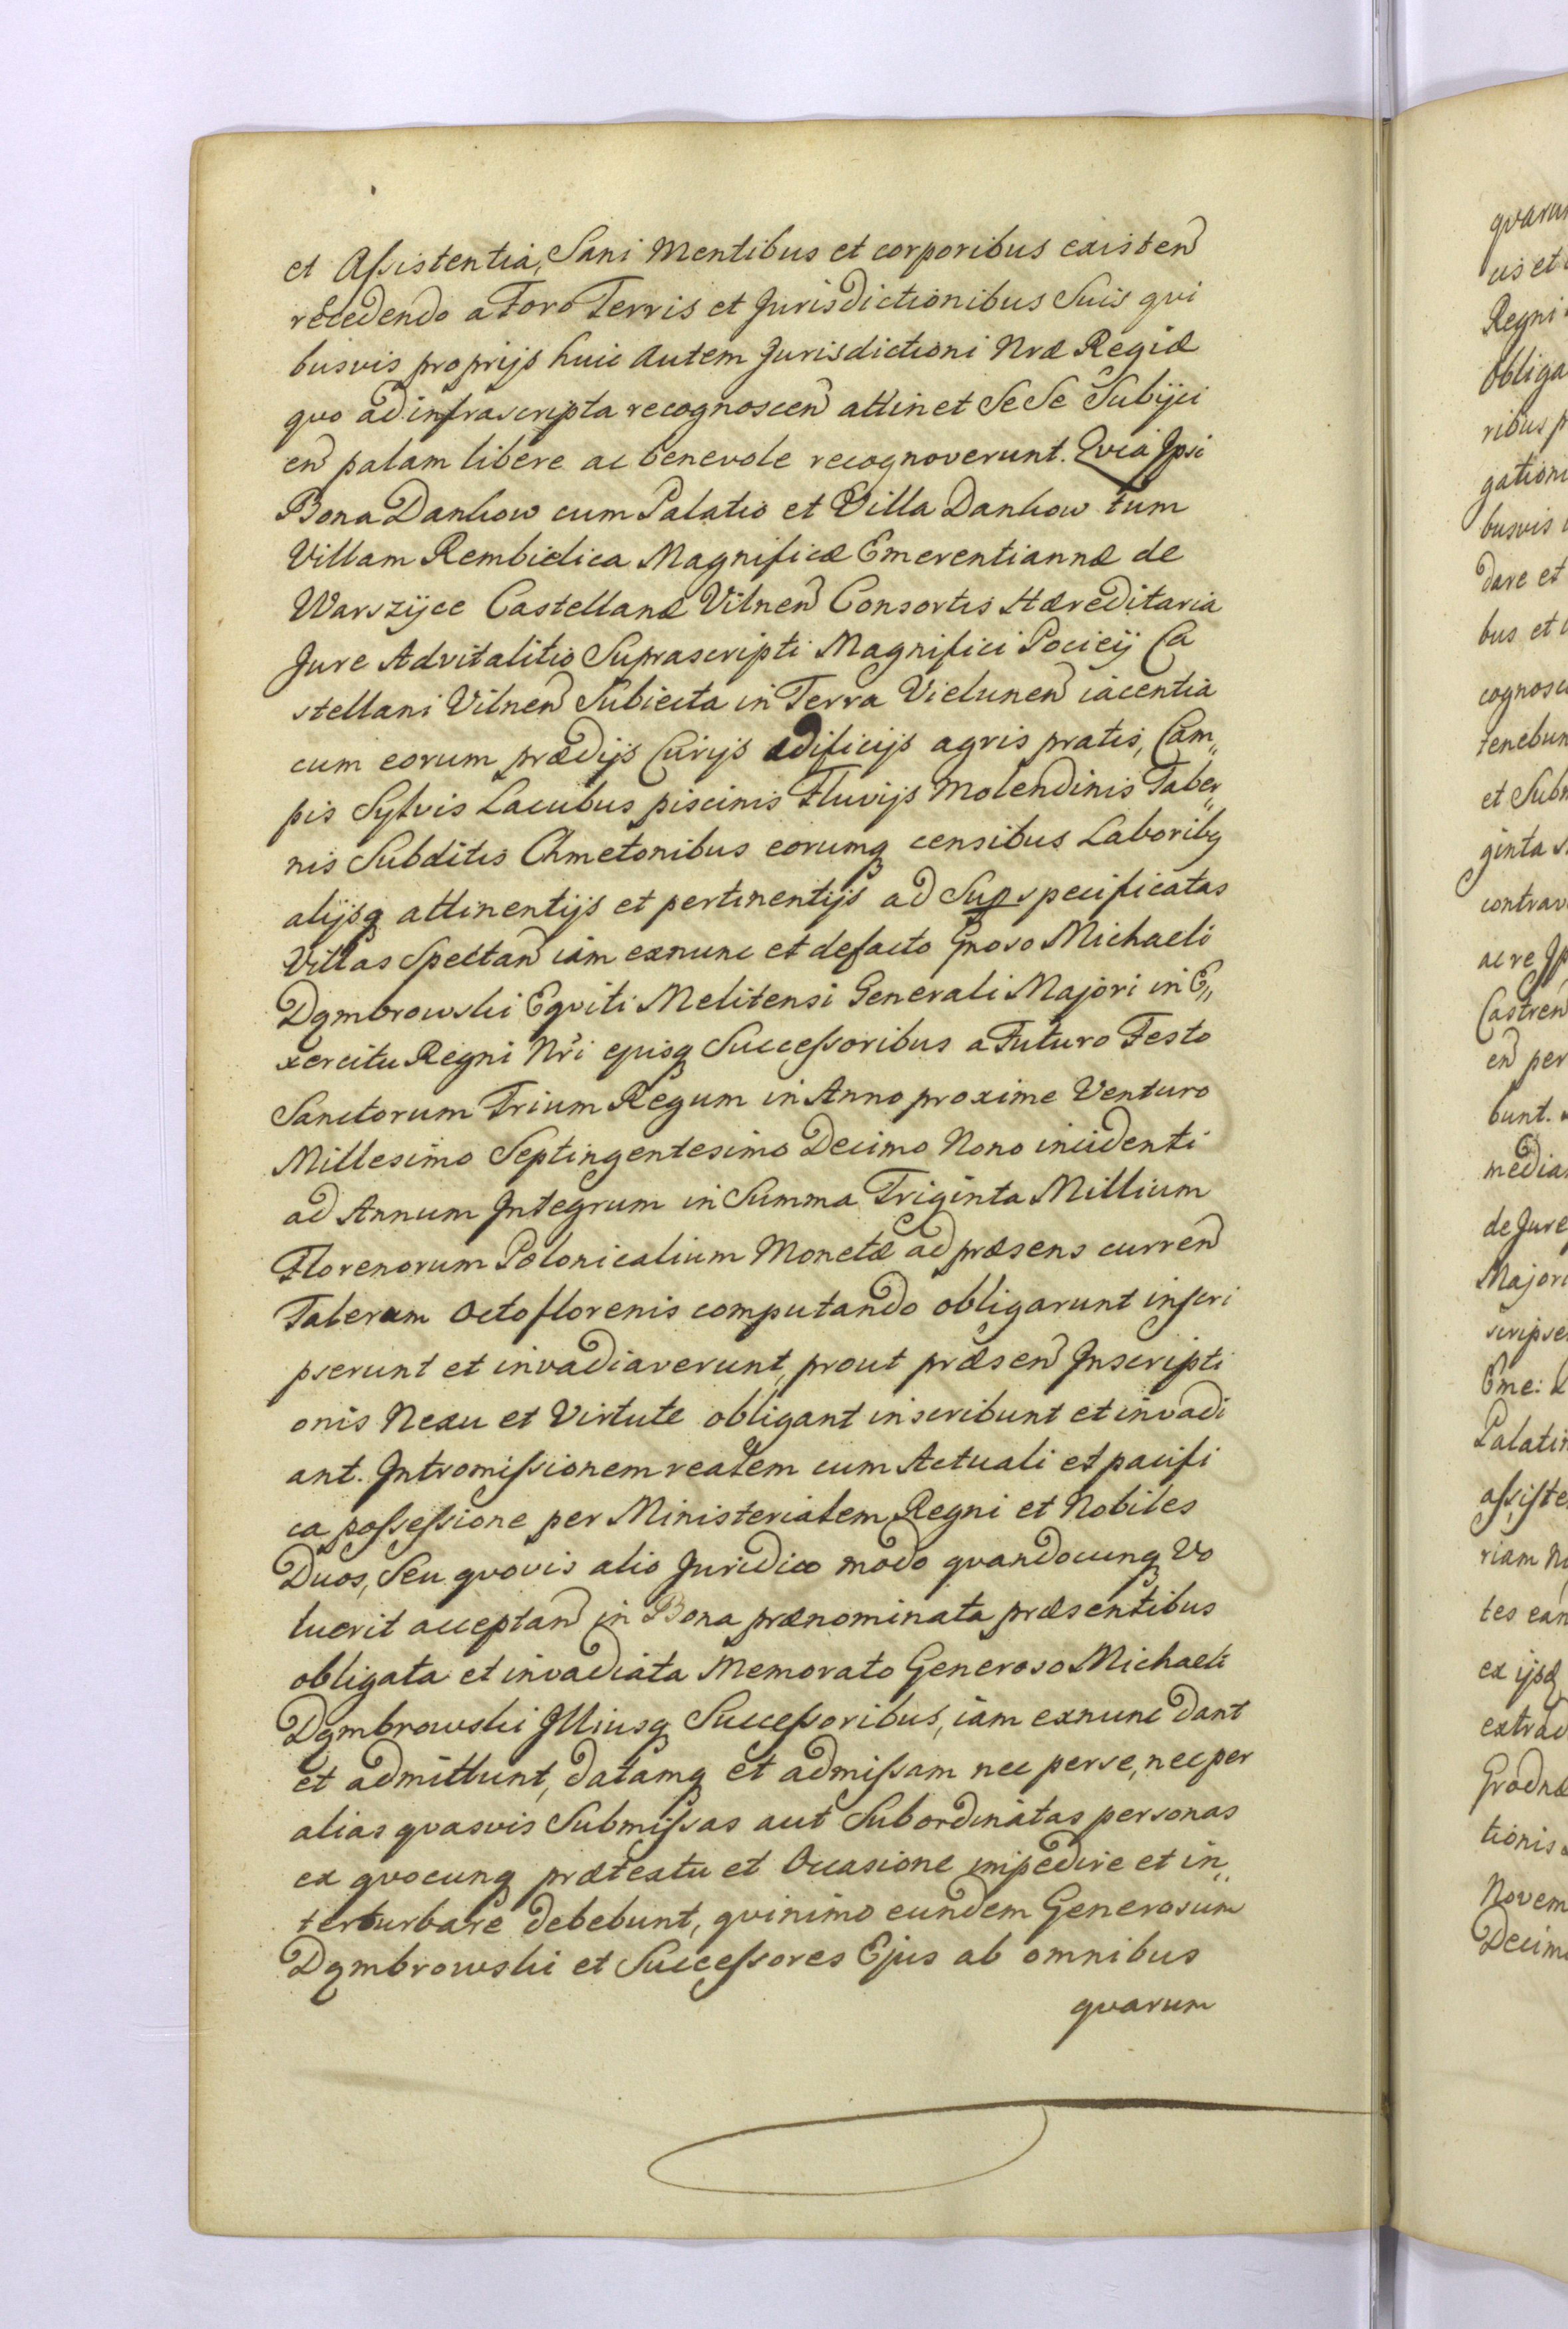 et Aſsistentia, Sani Mentibus et corporibus existen
recedendo a Foro Terris et Jurisdictionibus Suis qui
busvis proprijs huic autem Jurisdictioni Nræ Regiæ
quo ad infrascripta recognoscen attinet SeSe Subijci
en palam libere ac benevole recognoverunt. Qvia Ipsi
Bona Dankow cum Palatio et Villa Dankow tum
Villam Rembielica Magnificæ Emerentiannæ de
Warszyce Castellanæ Vilnen Consortis Hæreditaria
Jure Advitalitio Suprascripti Magnifici Pocieij Ca
stellani Vilnen Subiecta in Terra Vielunen iacentia
cum eorum prædijs Curijs ædificijs agris pratis, Cam„
pis Sylvis Lacubus piscinis Fluvijs Molendinis Taber„
nis Subditis Chmetonibus eorumq censibus Laboribq
alijsq attinentijs et pertinentijs ad Sup specificatas
Villas Spectan iam exnunc et defacto Gnoso Michaeli
Dąmbrowski Eqviti Melitensi Generali Majori in E„
xercitu Regni Nri ejusq Succeſsoribus a Futuro Festo
Sanctorum Trium Regum in Anno proxime Venturo
Millesimo Septingentesimo Decimo Nono incidenti
ad Annum Integrum in Summa Triginta Millium
Florenorum Polonicalium Monetæ ad præsens curren
Talerum octo florenis computando obligarunt inscri
pserunt et invadiaverunt, prout præsen Inscripti
onis Nexu et Virtute obligant inscribunt et invadi
ant. Intromiſsionem realem cum Actuali et pacifi
ca poſseſsione per Ministerialem Regni et Nobiles
Duos, Seu qvovis alio Juridico modo qvandocunq Vo
luerit acceptan in Bona prænominata præsentibus
obligata et invadiata Memorato Generoso Michaeli
Dąmbrowski Illiusq Succeſsoribus, iam exnunc dant
et admittunt, datamq et admiſsam nec per se, nec per
alias qvasvis Submiſsas aut Subordinatas personas
ex qvocunq prætextu et Occasione impedire et in„
terturbare debebunt, qvinimo eundem Generosum
Dąmbrowski et Succeſsores Ejus ab omnibus
qvarum
qvarum
Regni
obliga
gationi
busvis
dare et
bus et
cognosc
tenebun
et Subm
ginta
contrav
ac re
Castren
en per
bunt.
media
de Jure
Majori
scripse
Eme:
Palatin
aſsiste
riam
tes
ex ijsq
extrad
Grodnæ
tionis
Novem
Decim